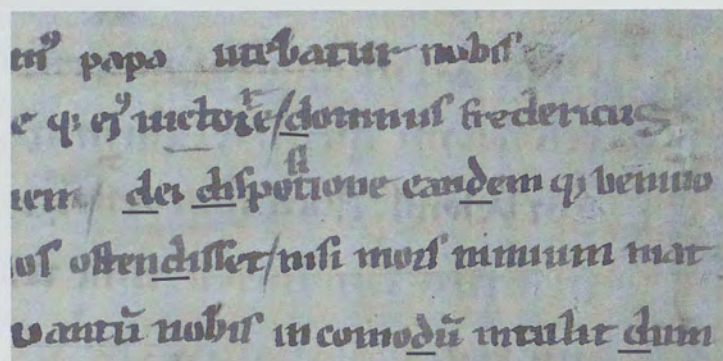 papa utebatur nobis
e q; eiꝰ uictorie/dominus fredericus
dei dispositione eandem q; uenimo
os ostendisset/nisi mors nimium mat
uantū nobis incomodū intulit dum